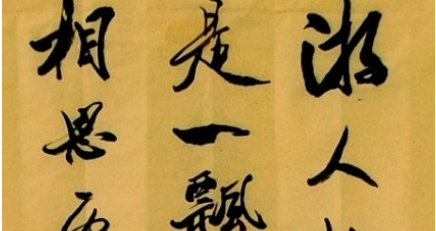 游人
是一飘
相思